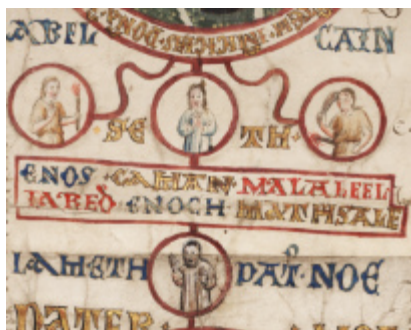 ABEL CAIN
SE TH
ENOS CAINAN MALALEEL
IARED ENOCH MATUSALE
LAMETH PAT NOE
PATER